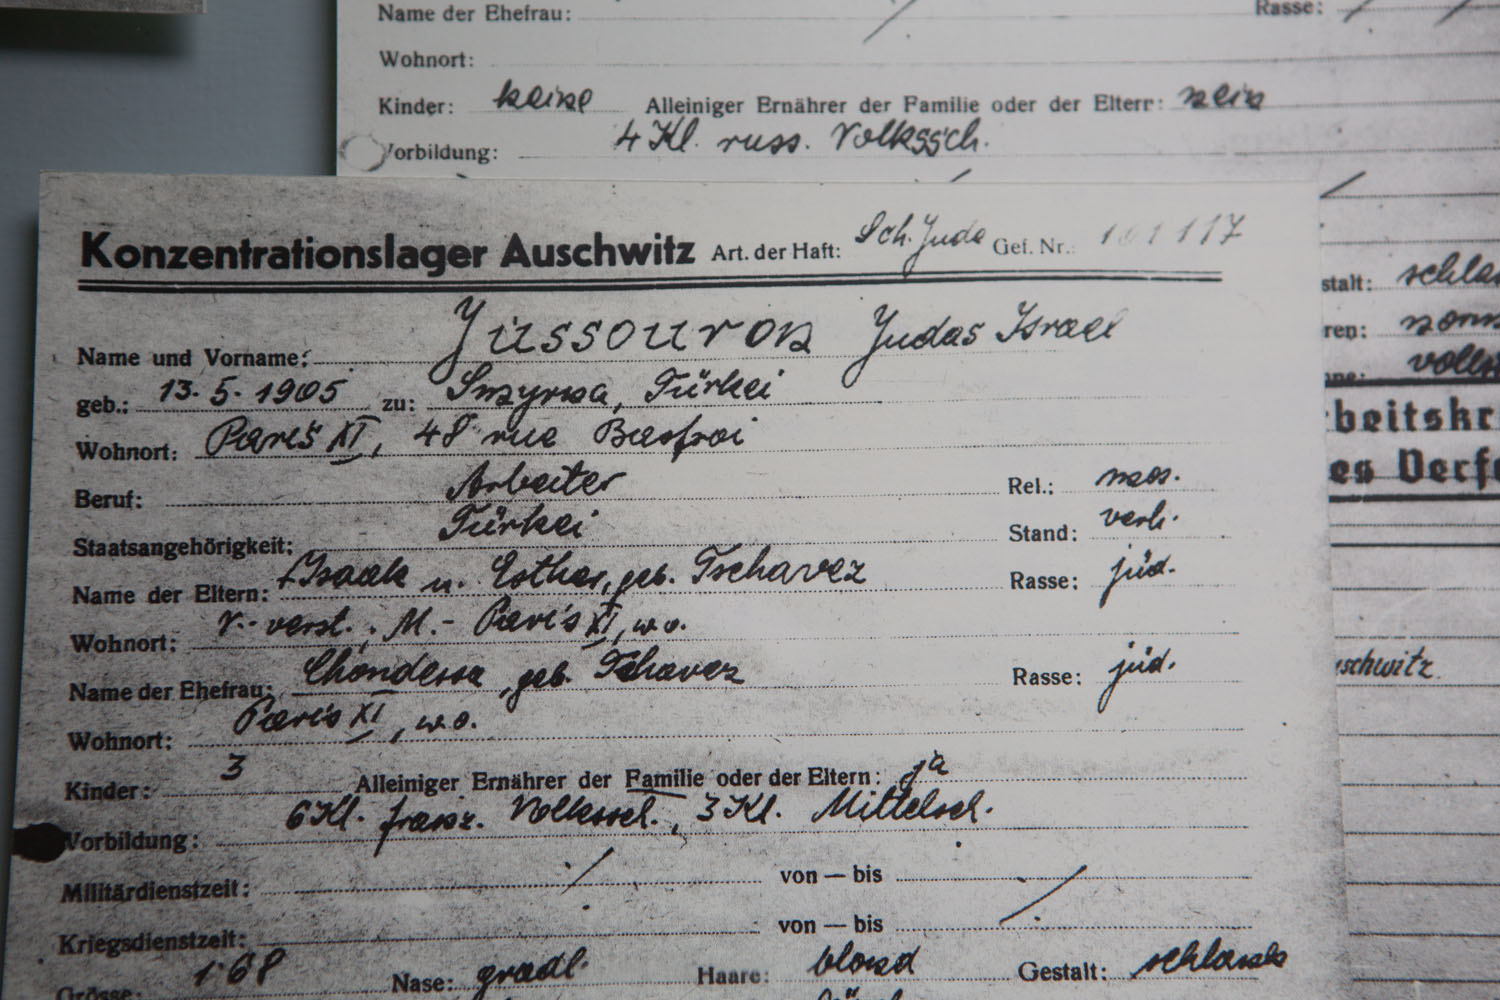 Name der Ehefrau: Rasse:
Wohnort:
Kinder: keine Alleiniger Ernährer der Familie oder der Eltern: nein
Vorbildung: 4 Kl. russ. Volkssch.
Konzentrationslager Auschwitz Art. der Haft: Sch. Jude Gef. Nr.: 101117
Name und Vorname: Jussouron Judas Israel
geb.: 13. 5. 1905 zu: Smyrna, Türkei
Wohnort: Paris XI, 48 rue Basfroi
Beruf: Arbeiter Rel.: mos.
Staatsangehörigkeit: Türkei Stand: verh.
Name der Eltern: Isaak u. Esther, geb. Tschavez Rasse: jüd.
Wohnort: V.- verst., M.- Paris XI, w.o.
Name der Ehefrau: Chondessa, geb. Tchavez Rasse: jüd.
Wohnort: Paris XI, w.o.
Kinder: 3 Alleiniger Ernährer der Familie oder der Eltern: ja
Vorbildung: 6 Kl. franz. Volkssch., 3 Kl. Mittelsch.
Militärdienstzeit: / von — bis /
Kriegsdienstzeit: von — bis
Grösse: 168 Nase: gradl. Haare: blond Gestalt: schlank
stalt: schla
ren:
beitskr
es Verf
schwitz